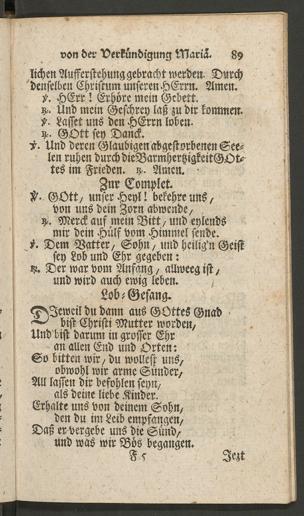 von der Verkündigung Mariä. 89
lichen Aufferstehung gebracht werden. Durch
denselben Christum unseren HErrn. Amen.
℣. HErr! Erhöre mein Gebett.
℟. Und mein Geschrey laß zu dir kommen.
℣. Lasset uns den HErrn loben.
℟. GOtt sey Danck.
℣. Und deren Glaubigen abgestorbenen See-
len ruhen durch die Barmhertzigkeit GOt-
tes im Frieden. ℟. Amen.
Zur Complet.
℣. GOtt, unser Heyl! bekehre uns,
von uns dein Zorn abwende,
℟. Merck auf mein Bitt, und eylends
mir dein Hülf vom Himmel sende.
℣. Dem Vatter, Sohn, und heilig'n Geist
sey Lob und Ehr gegeben:
℟. Der war vom Anfang, allweeg ist,
und wird auch ewig leben.
Lob-Gesang.
DJeweil du dann aus GOttes Gnad
bist Christi Mutter worden,
Und bist darum in grosser Ehr
an allen End und Orten:
So bitten wir, du wollest uns,
obwohl wir arme Sünder,
All lassen dir befohlen seyn,
als deine liebe Kinder.
Erhalte uns von deinem Sohn,
den du im Leib empfangen,
Daß er vergebe uns die Sünd,
und was wir Bös begangen.
F 5 Jezt